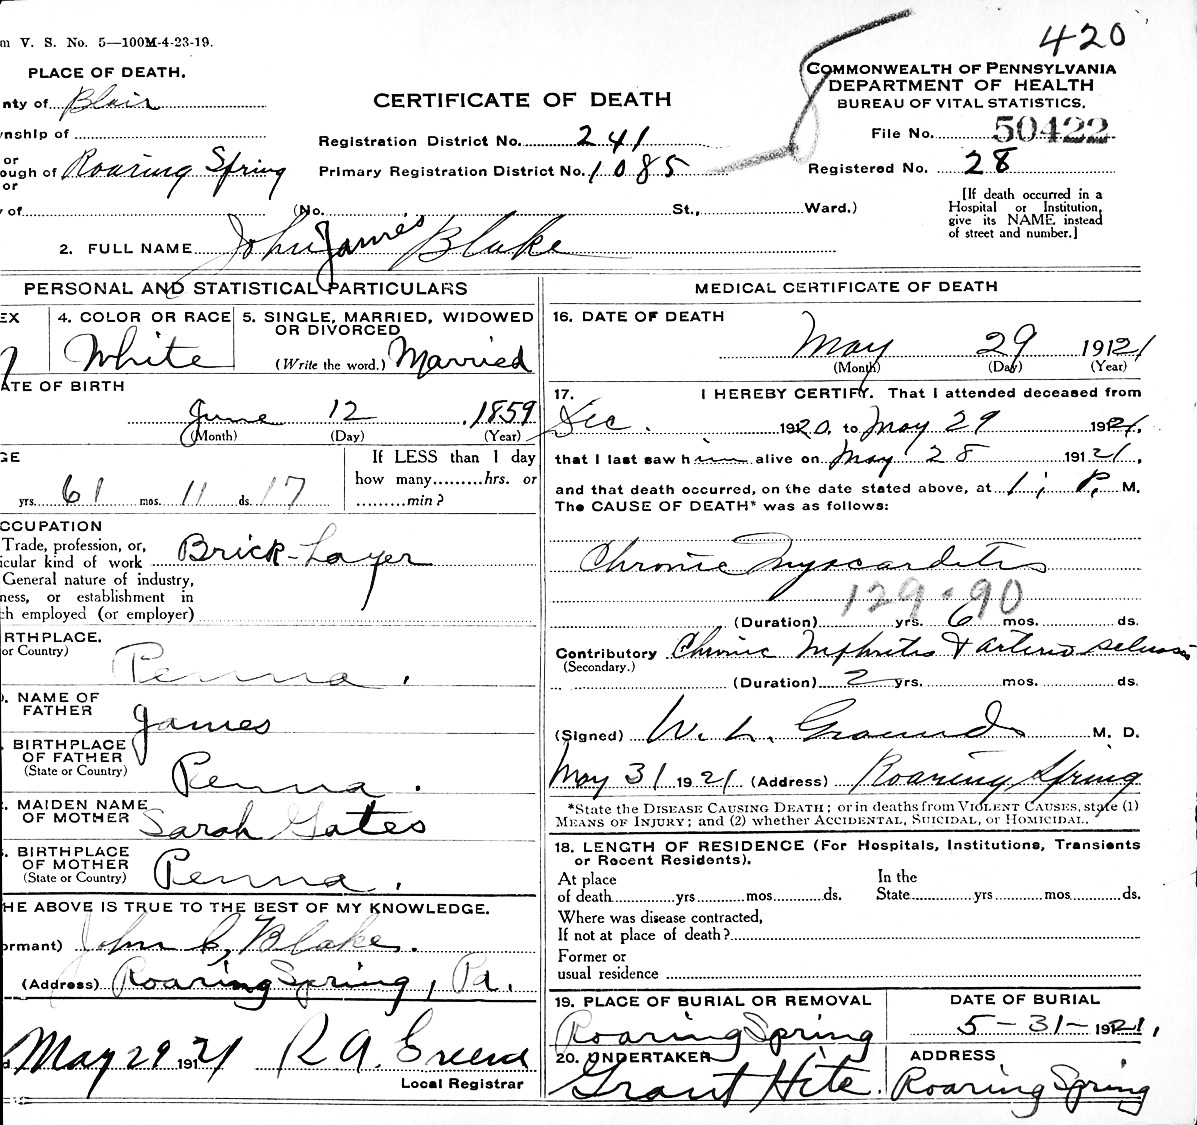 m V. S. No. 5—100M-4-23-19.
420
PLACE OF DEATH.
nty of Blair
nship of
or
ough of Roaring Spring
or
y of
CERTIFICATE OF DEATH
Registration District No. 241
Primary Registration District No. 1085
(No. St., Ward.)
COMMONWEALTH OF PENNSYLVANIA
DEPARTMENT OF HEALTH
BUREAU OF VITAL STATISTICS.
File No. 50422
Registered No. 28
[If death occurred in a
Hospital or Institution,
give its NAME instead
of street and number.]
2. FULL NAME John James Blake
PERSONAL AND STATISTICAL PARTICULARS
EX
4. COLOR OR RACE
White
5. SINGLE, MARRIED, WIDOWED
OR DIVORCED
(Write the word.) Married
ATE OF BIRTH
June 12, 1859
(Month) (Day) (Year)
GE
61 yrs. 11 mos. 17 ds.
If LESS than 1 day
how many.........hrs. or
.........min?
CCUPATION
Trade, profession, or,
icular kind of work Brick-Layer
General nature of industry,
ness, or establishment in
ch employed (or employer)
RTHPLACE.
or Country)
Penna.
NAME OF
FATHER
James
BIRTHPLACE
OF FATHER
(State or Country)
Penna.
MAIDEN NAME
OF MOTHER
Sarah Gates
BIRTHPLACE
OF MOTHER
(State or Country)
Penna.
HE ABOVE IS TRUE TO THE BEST OF MY KNOWLEDGE.
ormant) John C. Blake.
(Address) Roaring Spring, Pa.
May 29 1921
Local Registrar
MEDICAL CERTIFICATE OF DEATH
16. DATE OF DEATH
May 29 1921
(Month) (Day) (Year)
17. I HEREBY CERTIFY. That I attended deceased from
Dec. 1920, to May 29 1921,
that I last saw him alive on May 28 1921,
and that death occurred, on the date stated above, at 1; P. M.
The CAUSE OF DEATH* was as follows:
Chronic Myocarditis
129.90
(Duration) yrs. 6 mos. ds.
Contributory Chronic Nephritis & arterio sclerosis
(Secondary.)
(Duration) 2 yrs. mos. ds.
(Signed) M. D.
May 31 1921 (Address) Roaring Spring
*State the DISEASE CAUSING DEATH; or in deaths from VIOLENT CAUSES, state (1)
MEANS OF INJURY; and (2) whether ACCIDENTAL, SUICIDAL, or HOMICIDAL.
18. LENGTH OF RESIDENCE (For Hospitals, Institutions, Transients
or Recent Residents).
At place
of death yrs mos. ds.
In the
State yrs mos. ds.
Where was disease contracted,
If not at place of death?
Former or
usual residence
19. PLACE OF BURIAL OR REMOVAL
Roaring Spring
DATE OF BURIAL
5-31-1921,
20. UNDERTAKER
Grant Hite.
ADDRESS
Roaring Spring